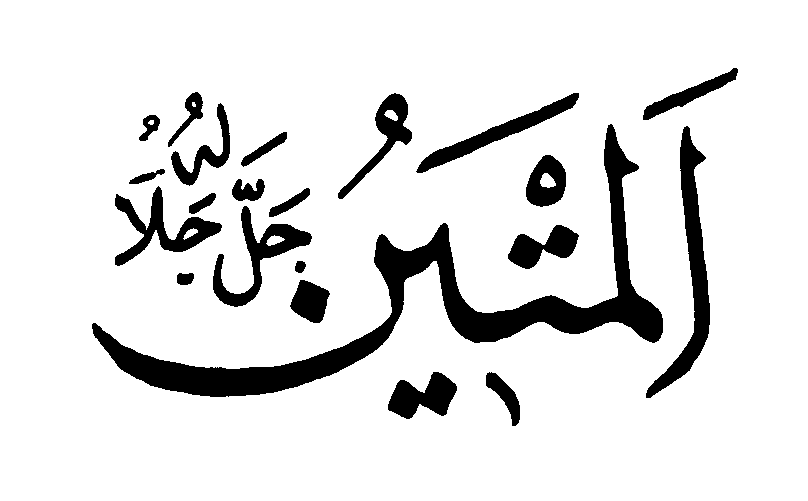 اَلْمَتْيِنُ
جَلَّ جَلَالُهُ